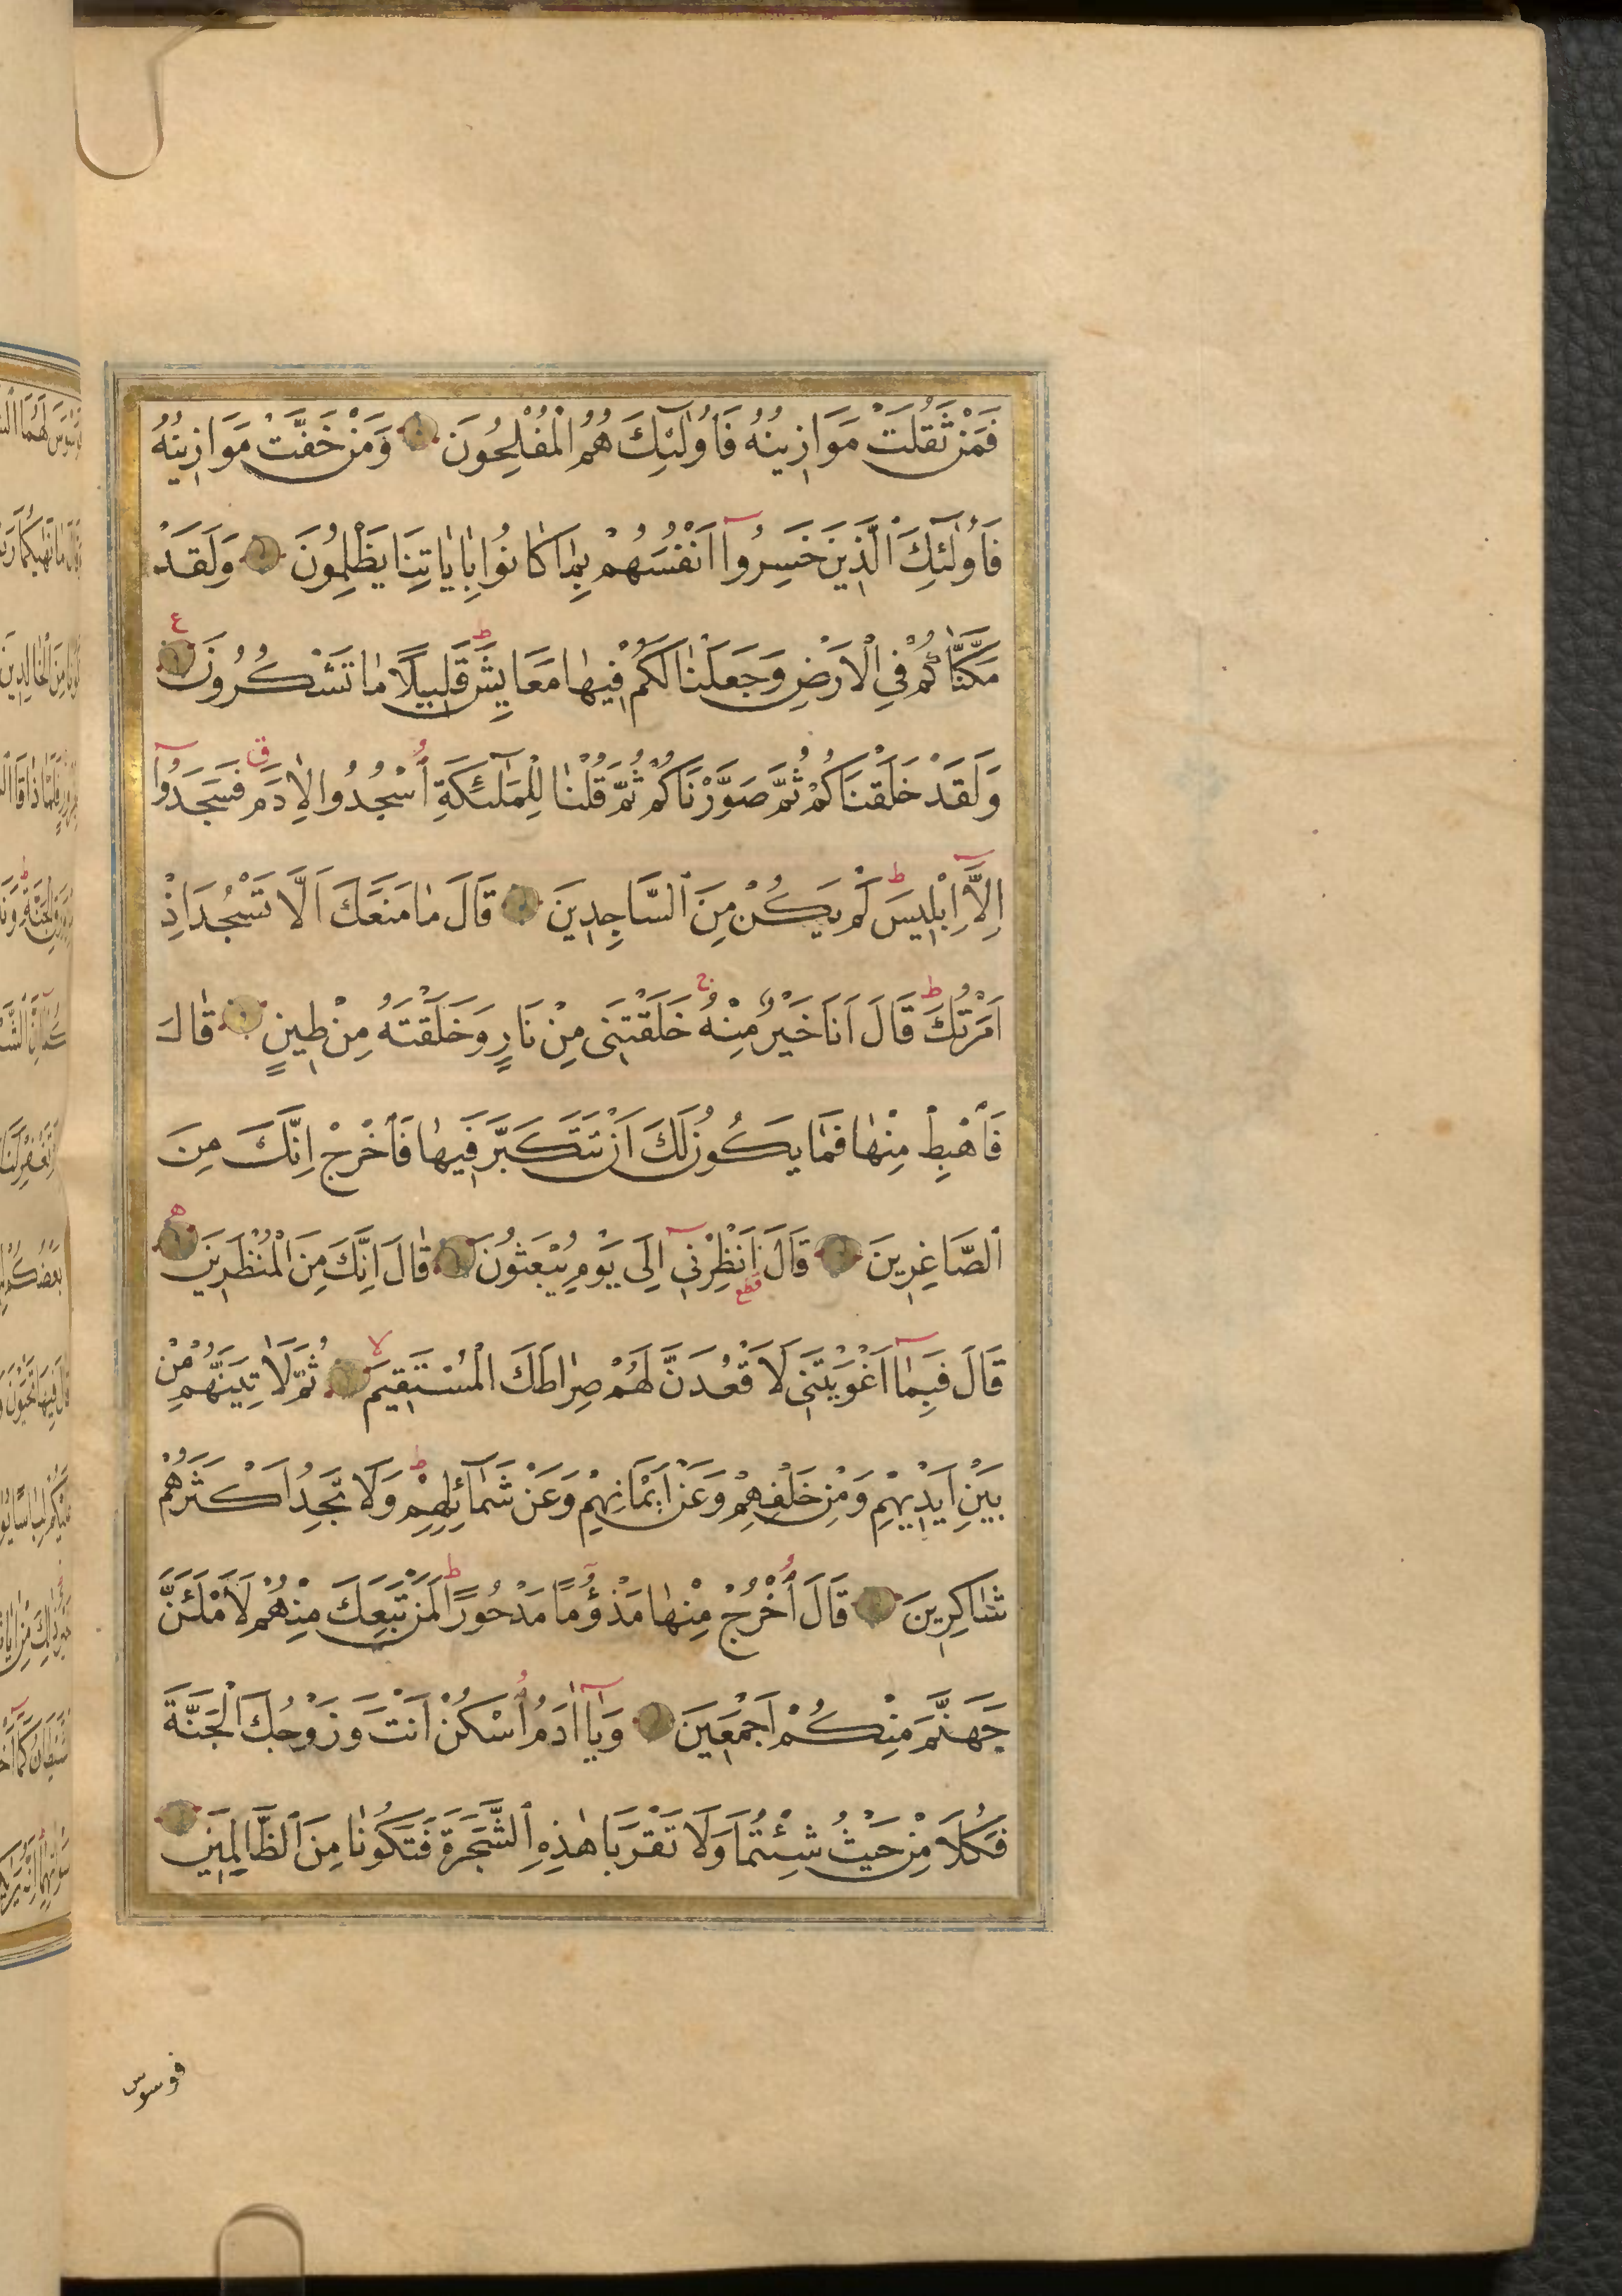 فَمَنْ ثَقُلَتْ مَوَازِينُهُ فَأُولٰئِكَ هُمُ الْمُفْلِحُونَ وَمَنْ خَفَّتْ مَوَازِينُهُ
فَأُولٰئِكَ الَّذِينَ خَسِرُوا اَنْفُسَهُمْ بِمَا كَانُوا بِاٰيَاتِنَا يَظْلِمُونَ وَلَقَدْ
مَكَّنَّاكُمْ فِي الْاَرْضِ وَجَعَلْنَا لَكُمْ فِيهَا مَعَايِشَ ط قَلِيلًا مَا تَشْكُرُونَ ع
وَلَقَدْ خَلَقْنَاكُمْ ثُمَّ صَوَّرْنَاكُمْ ثُمَّ قُلْنَا لِلْمَلٰئِكَةِ اُسْجُدُوا لِاٰدَمَ ق فَسَجَدُوا
اِلَّا اِبْلِيسَ ط لَمْ يَكُنْ مِنَ السَّاجِدِينَ قَالَ مَا مَنَعَكَ اَلَّا تَسْجُدَ اِذْ
اَمَرْتُكَ ط قَالَ اَنَا خَيْرٌ مِنْهُ ج خَلَقْتَنِي مِنْ نَارٍ وَخَلَقْتَهُ مِنْ طِينٍ قَالَ
فَاهْبِطْ مِنْهَا فَمَا يَكُونُ لَكَ اَنْ تَتَكَبَّرَ فِيهَا فَاخْرُجْ اِنَّكَ مِنَ
الصَّاغِرِينَ قَالَ اَنْظِرْنِي اِلَى يَوْمِ يُبْعَثُونَ قَالَ اِنَّكَ مِنَ الْمُنْظَرِينَ ه
قطع
قَالَ فَبِمَا اَغْوَيْتَنِي لَاَقْعُدَنَّ لَهُمْ صِرَاطَكَ الْمُسْتَقِيمَ لا ثُمَّ لَاٰتِيَنَّهُمْ مِنْ
بَيْنِ اَيْدِيهِمْ وَمِنْ خَلْفِهِمْ وَعَنْ اَيْمَانِهِمْ وَعَنْ شَمَائِلِهِمْ ط وَلَا تَجِدُ اَكْثَرَهُمْ
شَاكِرِينَ قَالَ اُخْرُجْ مِنْهَا مَذْؤُمًا مَدْحُورًا ط لَمَنْ تَبِعَكَ مِنْهُمْ لَاَمْلَئَنَّ
جَهَنَّمَ مِنْكُمْ اَجْمَعِينَ وَيَا اٰدَمُ اُسْكُنْ اَنْتَ وَزَوْجُكَ الْجَنَّةَ
فَكُلَا مِنْ حَيْثُ شِئْتُمَا وَلَا تَقْرَبَا هٰذِهِ الشَّجَرَةَ فَتَكُونَا مِنَ الظَّالِمِينَ
فوسوس